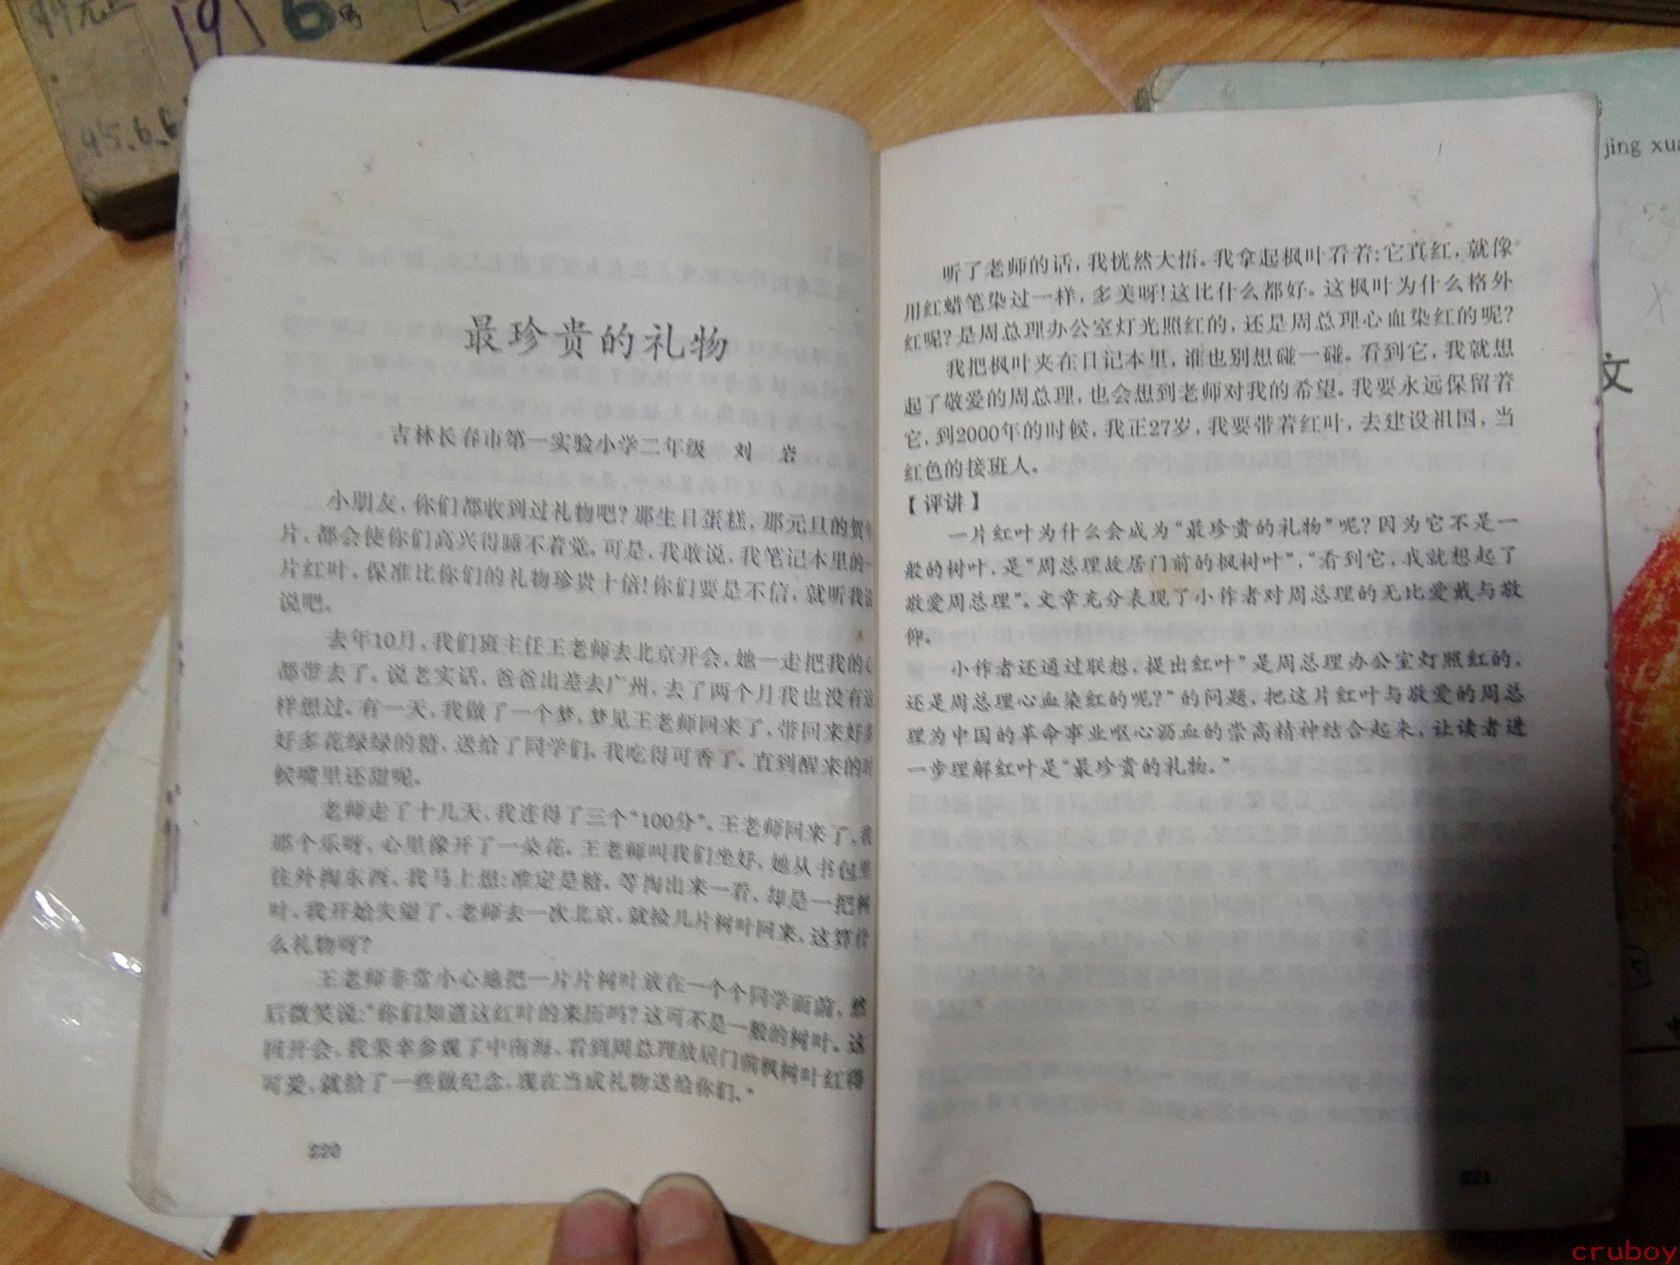 最珍贵的礼物
吉林长春市第一实验小学二年级 刘 岩
小朋友，你们都收到过礼物吧？那生日蛋糕，那元旦的贺年
片，都会使你们高兴得睡不着觉。可是，我敢说，我笔记本里的一
片红叶，保准比你们的礼物珍贵十倍！你们要是不信，就听我说
说吧。
去年10月，我们班主任王老师去北京开会，她一走把我的心
都带去了。说老实话，爸爸出差去广州，去了两个月我也没有这
样想过。有一天，我做了一个梦，梦见王老师回来了，带回来好多
好多花绿绿的糖，送给了同学们。我吃得可香了。直到醒来的时
候嘴里还甜呢。
老师走了十几天，我连得了三个“100分”。王老师回来了，我
那个乐呀，心里像开了一朵花。王老师叫我们坐好，她从书包里
往外掏东西，我马上想：准定是糖。等掏出来一看，却是一把树
叶，我开始失望了，老师去一次北京，就捡几片树叶回来，这算什
么礼物呀？
王老师非常小心地把一片片树叶放在一个个同学面前，然
后微笑说：“你们知道这红叶的来历吗？这可不是一般的树叶。这
回开会，我荣幸参观了中南海，看到周总理故居门前枫树叶红得
可爱，就给了一些做纪念，现在当成礼物送给你们。”
220
听了老师的话，我恍然大悟。我拿起枫叶看着：它真红，就像
用红蜡笔染过一样，多美呀！这比什么都好。这枫叶为什么格外
红呢？是周总理办公室灯光照红的，还是周总理心血染红的呢？
我把枫叶夹在日记本里，谁也别想碰一碰。看到它，我就想
起了敬爱的周总理，也会想到老师对我的希望。我要永远保留着
它，到2000年的时候，我正27岁，我要带着红叶，去建设祖国，当
红色的接班人。
【评讲】
一片红叶为什么会成为“最珍贵的礼物”呢？因为它不是一
般的树叶，是“周总理故居门前的枫树叶”，“看到它，我就想起了
敬爱周总理”。文章充分表现了小作者对周总理的无比爱戴与敬
仰。
小作者还通过联想，提出红叶”是周总理办公室灯照红的，
还是周总理心血染红的呢？”的问题，把这片红叶与敬爱的周总
理为中国的革命事业呕心沥血的崇高精神结合起来，让读者进
一步理解红叶是“最珍贵的礼物。”
221
jing xua
文
cruboy